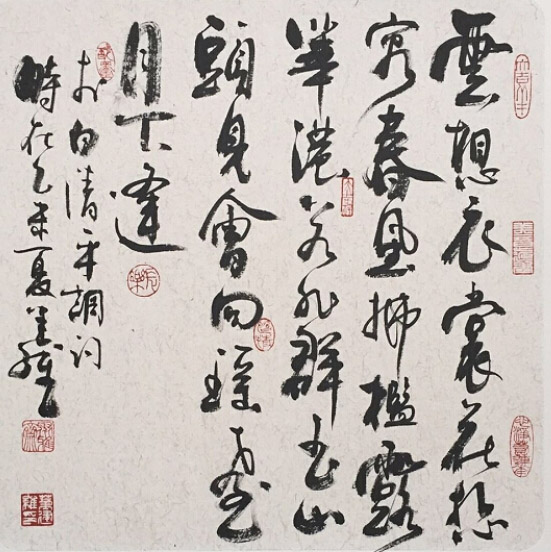 雲想衣裳花想
容春風拂檻露
華濃若非群玉山
頭見會向瑤臺
月下逢
李白清平調詞
時在乙未夏